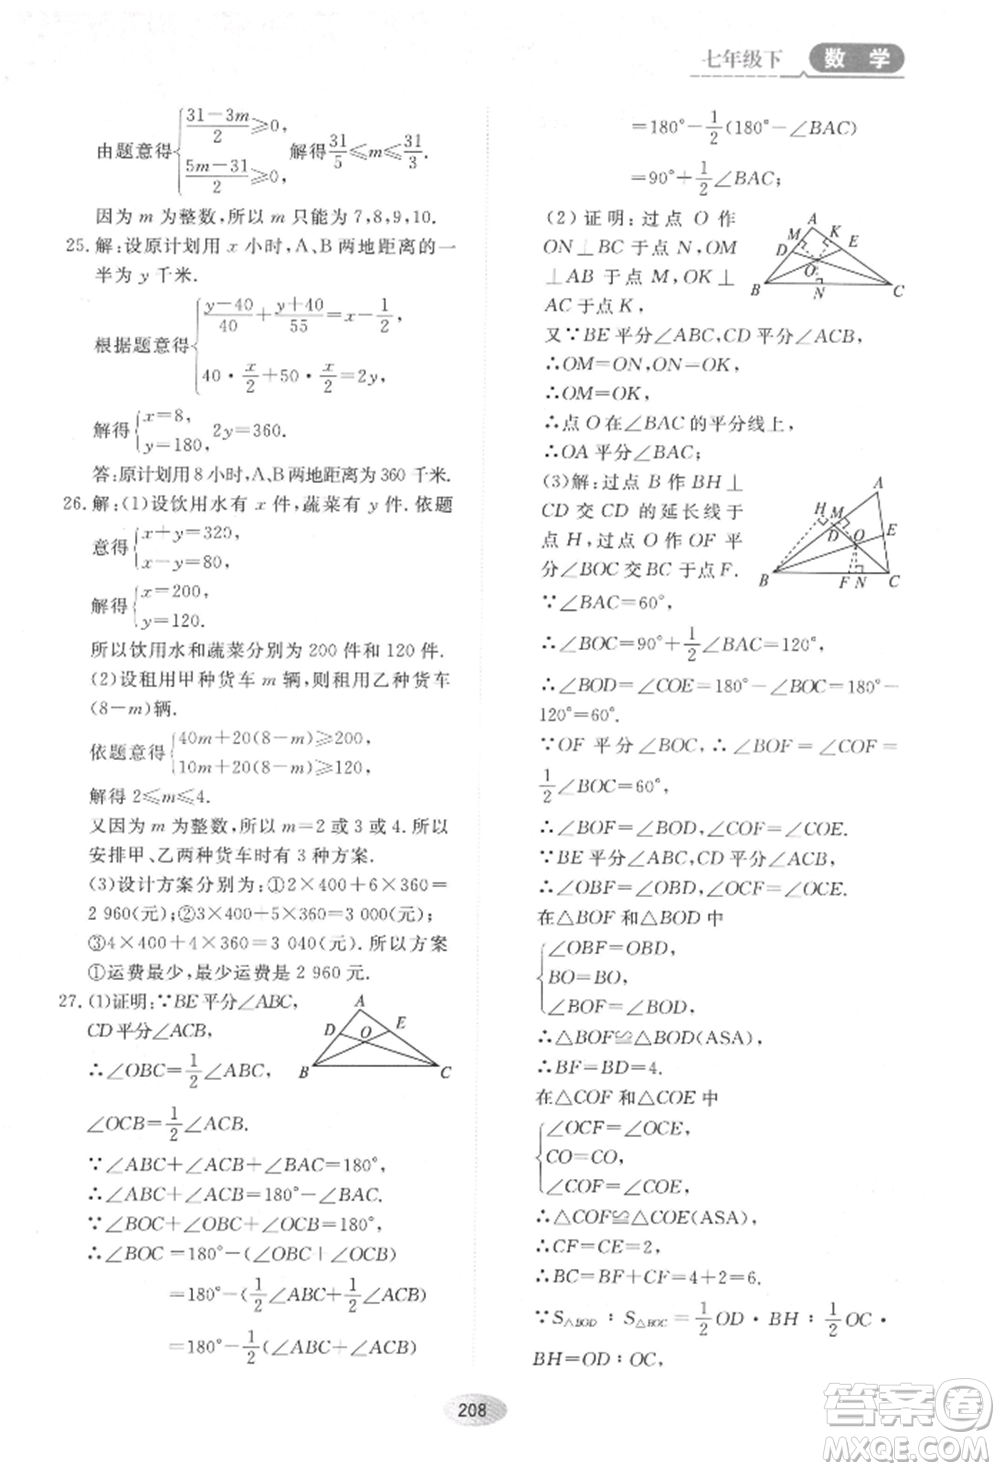 七年级下 数 学
由题意得{(31－3m)/2≥0, (5m－31)/2≥0, 解得31/5≤m≤31/3.
因为 m 为整数,所以 m 只能为 7,8,9,10.
25. 解:设原计划用 x 小时,A、B 两地距离的一
半为 y 千米.
根据题意得{(y－40)/40＋(y＋40)/55＝x－1/2, 40·x/2＋50·x/2＝2y,
解得{x＝8, y＝180, 2y＝360.
答:原计划用 8 小时,A、B 两地距离为 360 千米.
26. 解:(1)设饮用水有 x 件,蔬菜有 y 件. 依题
意得{x＋y＝320, x－y＝80,
解得{x＝200, y＝120.
所以饮用水和蔬菜分别为 200 件和 120 件.
(2)设租用甲种货车 m 辆,则租用乙种货车
(8－m)辆.
依题意得{40m＋20(8－m)≥200, 10m＋20(8－m)≥120,
解得 2≤m≤4.
又因为 m 为整数,所以 m＝2 或 3 或 4. 所以
安排甲、乙两种货车时有 3 种方案.
(3)设计方案分别为:①2×400＋6×360＝
2 960(元);②3×400＋5×360＝3 000(元);
③4×400＋4×360＝3 040(元). 所以方案
①运费最少,最少运费是 2 960 元.
27. (1)证明:∵BE 平分∠ABC,
CD 平分∠ACB,
∴∠OBC＝1/2∠ABC,
∠OCB＝1/2∠ACB.
A D O E B C
∵∠ABC＋∠ACB＋∠BAC＝180°,
∴∠ABC＋∠ACB＝180°－∠BAC.
∵∠BOC＋∠OBC＋∠OCB＝180°,
∴∠BOC＝180°－(∠OBC＋∠OCB)
＝180°－(1/2∠ABC＋1/2∠ACB)
＝180°－1/2(∠ABC＋∠ACB)
＝180°－1/2(180°－∠BAC)
＝90°＋1/2∠BAC;
(2)证明:过点 O 作
ON⊥BC 于点 N,OM
⊥AB 于点 M,OK⊥
AC 于点 K,
A M K D E O B N C
又∵BE 平分∠ABC,CD 平分∠ACB,
∴OM＝ON,ON＝OK,
∴OM＝OK,
∴点 O 在∠BAC 的平分线上,
∴OA 平分∠BAC.
(3)解:过点 B 作 BH⊥
CD 交 CD 的延长线于
点 H,过点 O 作 OF 平
分∠BOC 交 BC 于点 F.
A H M D O E B F N C
∵∠BAC＝60°,
∴∠BOC＝90°＋1/2∠BAC＝120°,
∴∠BOD＝∠COE＝180°－∠BOC＝180°－
120°＝60°.
∵OF 平分∠BOC, ∴∠BOF＝∠COF＝
1/2∠BOC＝60°,
∴∠BOF＝∠BOD,∠COF＝∠COE.
∵BE 平分∠ABC,CD 平分∠ACB,
∴∠OBF＝∠OBD,∠OCF＝∠OCE.
在△BOF 和△BOD 中
{∠OBF＝∠OBD,
BO＝BO,
∠BOF＝∠BOD,
∴△BOF≌△BOD(ASA),
∴BF＝BD＝4.
在△COF 和△COE 中
{∠OCF＝∠OCE,
CO＝CO,
∠COF＝∠COE,
∴△COF≌△COE(ASA),
∴CF＝CE＝2,
∴BC＝BF＋CF＝4＋2＝6.
∵S△BOD∶S△BOC＝1/2OD·BH∶1/2OC·
BH＝OD∶OC,
208
答案圈
MXQE.COM